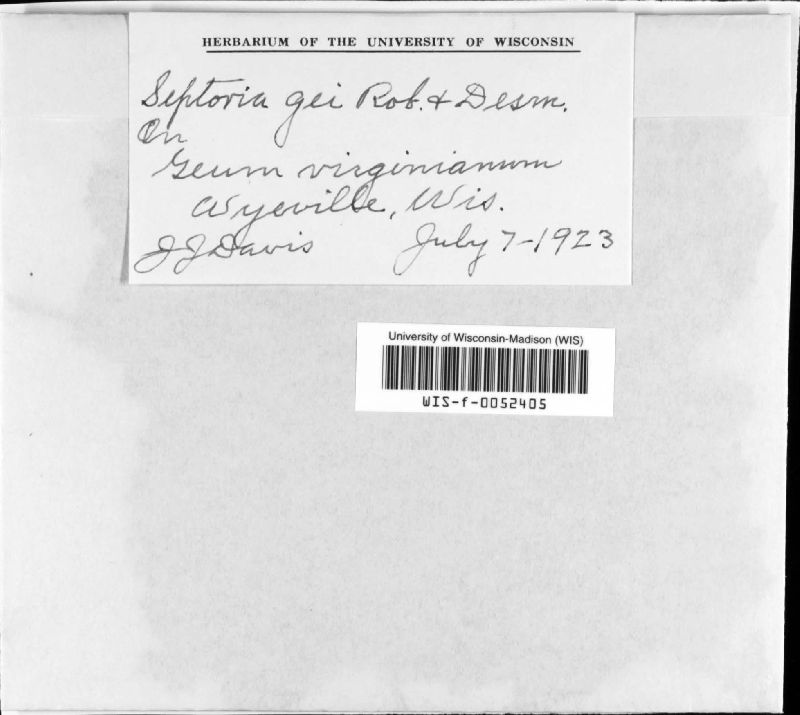 HERBARIUM OF THE UNIVERSITY OF WISCONSIN
Septoria gei Rob. & Desm.
On
Geum virginianum
Wyeville, Wis.
J J Davis July 7-1923
University of Wisconsin-Madison (WIS)
WIS-f-0052405